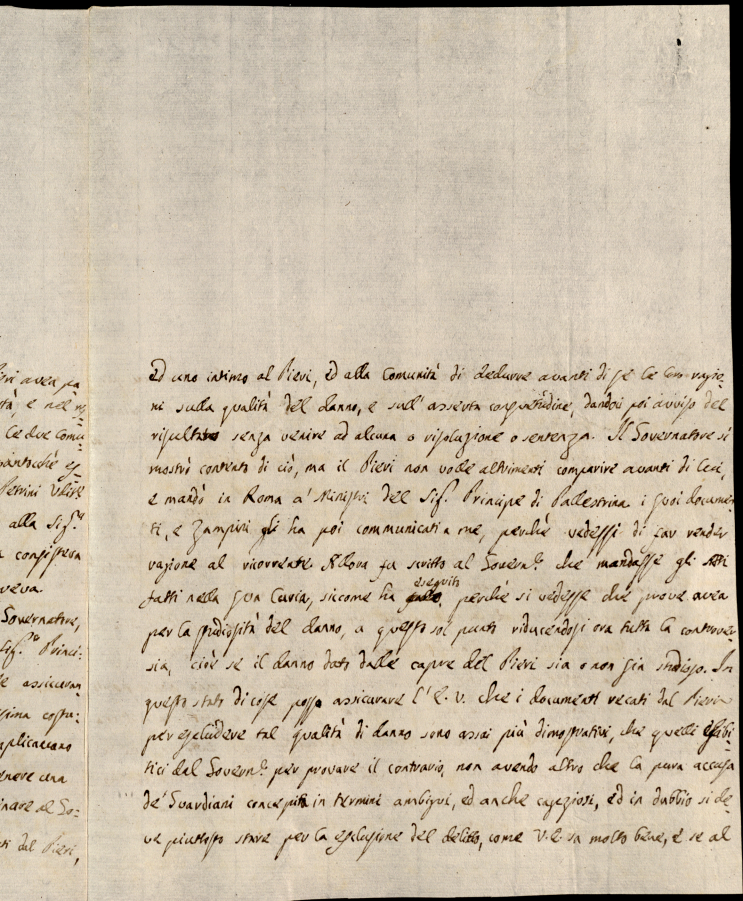 ed uno intimo al Pieri, ed alla Comunità di dedurre avanti di se le loro ragio-
ni sulla qualità del danno, e sull' asserta consuetudine, dandosi poi avviso del
risultato senza venire ad alcuna o risoluzione o sentenza. Il Governatore si
mostrò contento di ciò, ma il Pieri non volle altrimenti comparire avanti di lui,
e mandò in Roma a' Ministri del Sig.r Principe di Pallestrina i suoi documen-
ti, e Zampini gli ha poi communicati a me, perchè vedessi di far render
ragione al ricorrente. Allora fu scritto al Govern.re che mandasse gli Atti
fatti nella sua Curia, siccome ha eseguito, perchè si vedesse che prove avea
per la studiosità del danno, a questo sol punto riducendosi ora tutta la controver-
sia, cioè se il danno dato dalle capre del Pieri sia o non sia studioso. In
questo stato di cose posso assicurare l' E. V. che i documenti recati dal Pieri
per escludere tal qualità di danno sono assai più dimostrativi, che quelli esibi-
tici dal Govern.re per provare il contrario, non avendo altro che la pura accusa
de' Guardiani concepita in termini ambigui, ed anche capziosi, ed in dubbio si de-
ve piuttosto stare per la esclusione del delitto, come V. E. sa molto bene, e se al
avea
tà, e nel
le due Comu-
Petrini
alla Sig.ra
consisteva
veva.
Governatore,
Sig.re Princi-
assicuran
costu-
applicavano
una
al Go-
dal Pieri,